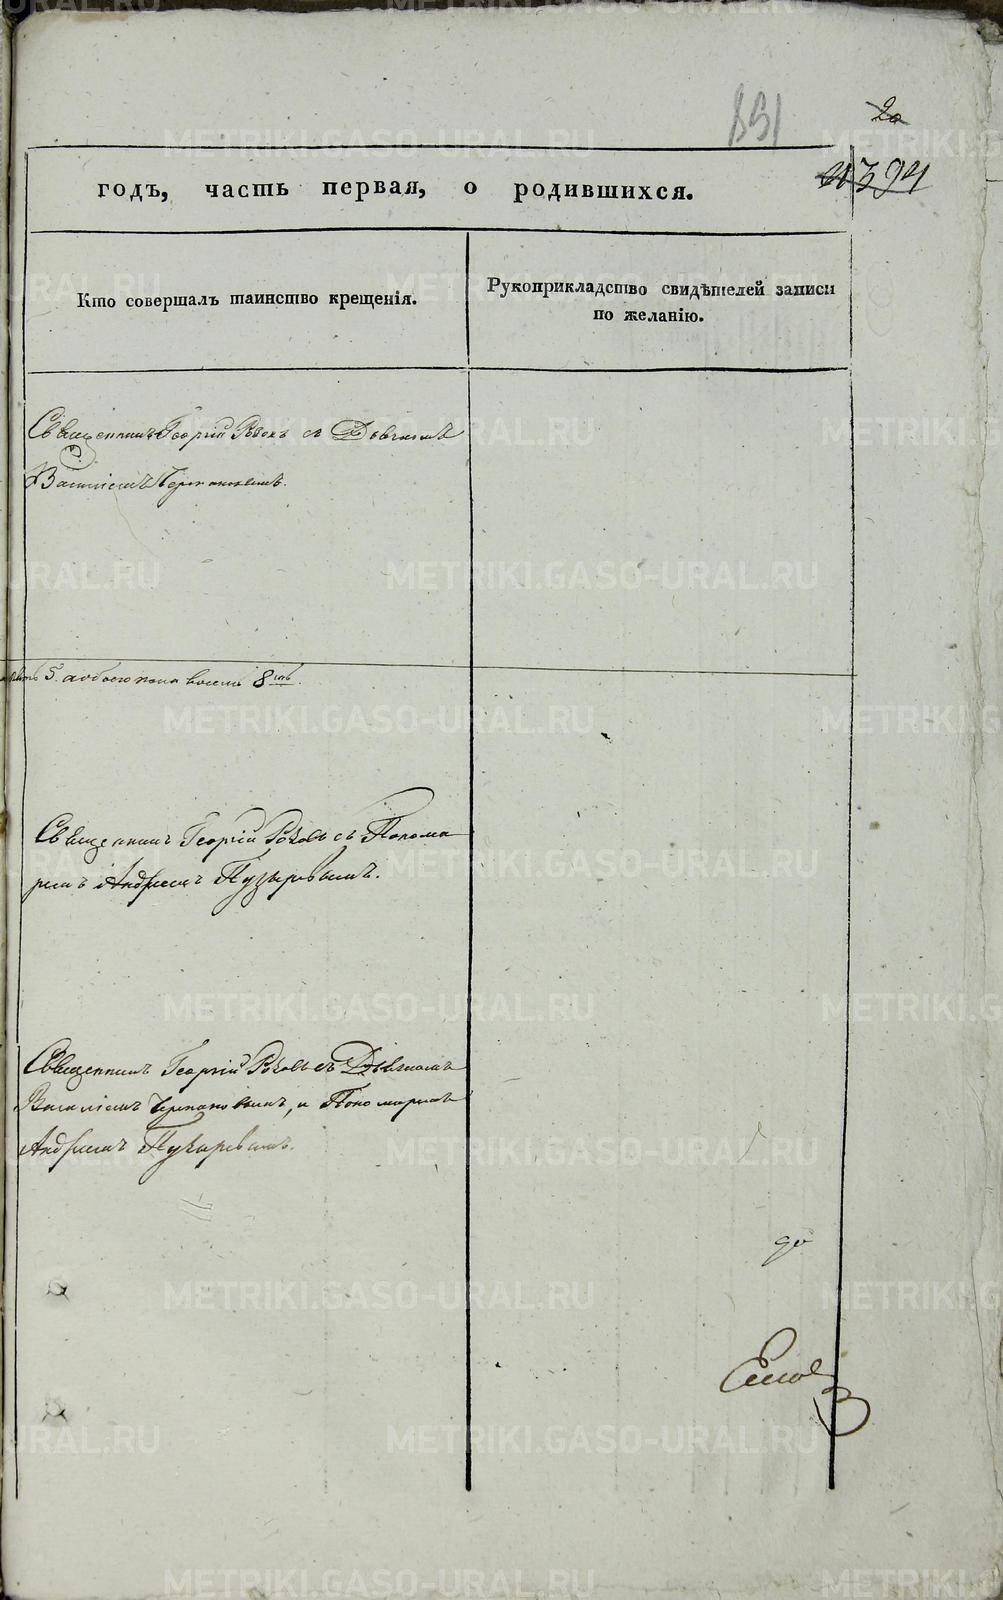 891
20
394
годъ, часть первая, о родившихся.
Кто совершалъ таинство крещенія.
Рукоприкладство свидѣтелей записи
по желанію.
Священникъ Георгій съ Дьячкомъ
Василіемъ Черпановымъ.
5. а обоего пола восемь 8мь.
Священникъ Георгій съ Понома
ремъ Андреемъ Пузыревымъ.
Священникъ Георгій съ Дьячкомъ
Василіемъ Черпановымъ, и Пономаремъ
Андреемъ Пузыревымъ.
METRIKI.GASO-URAL.RU